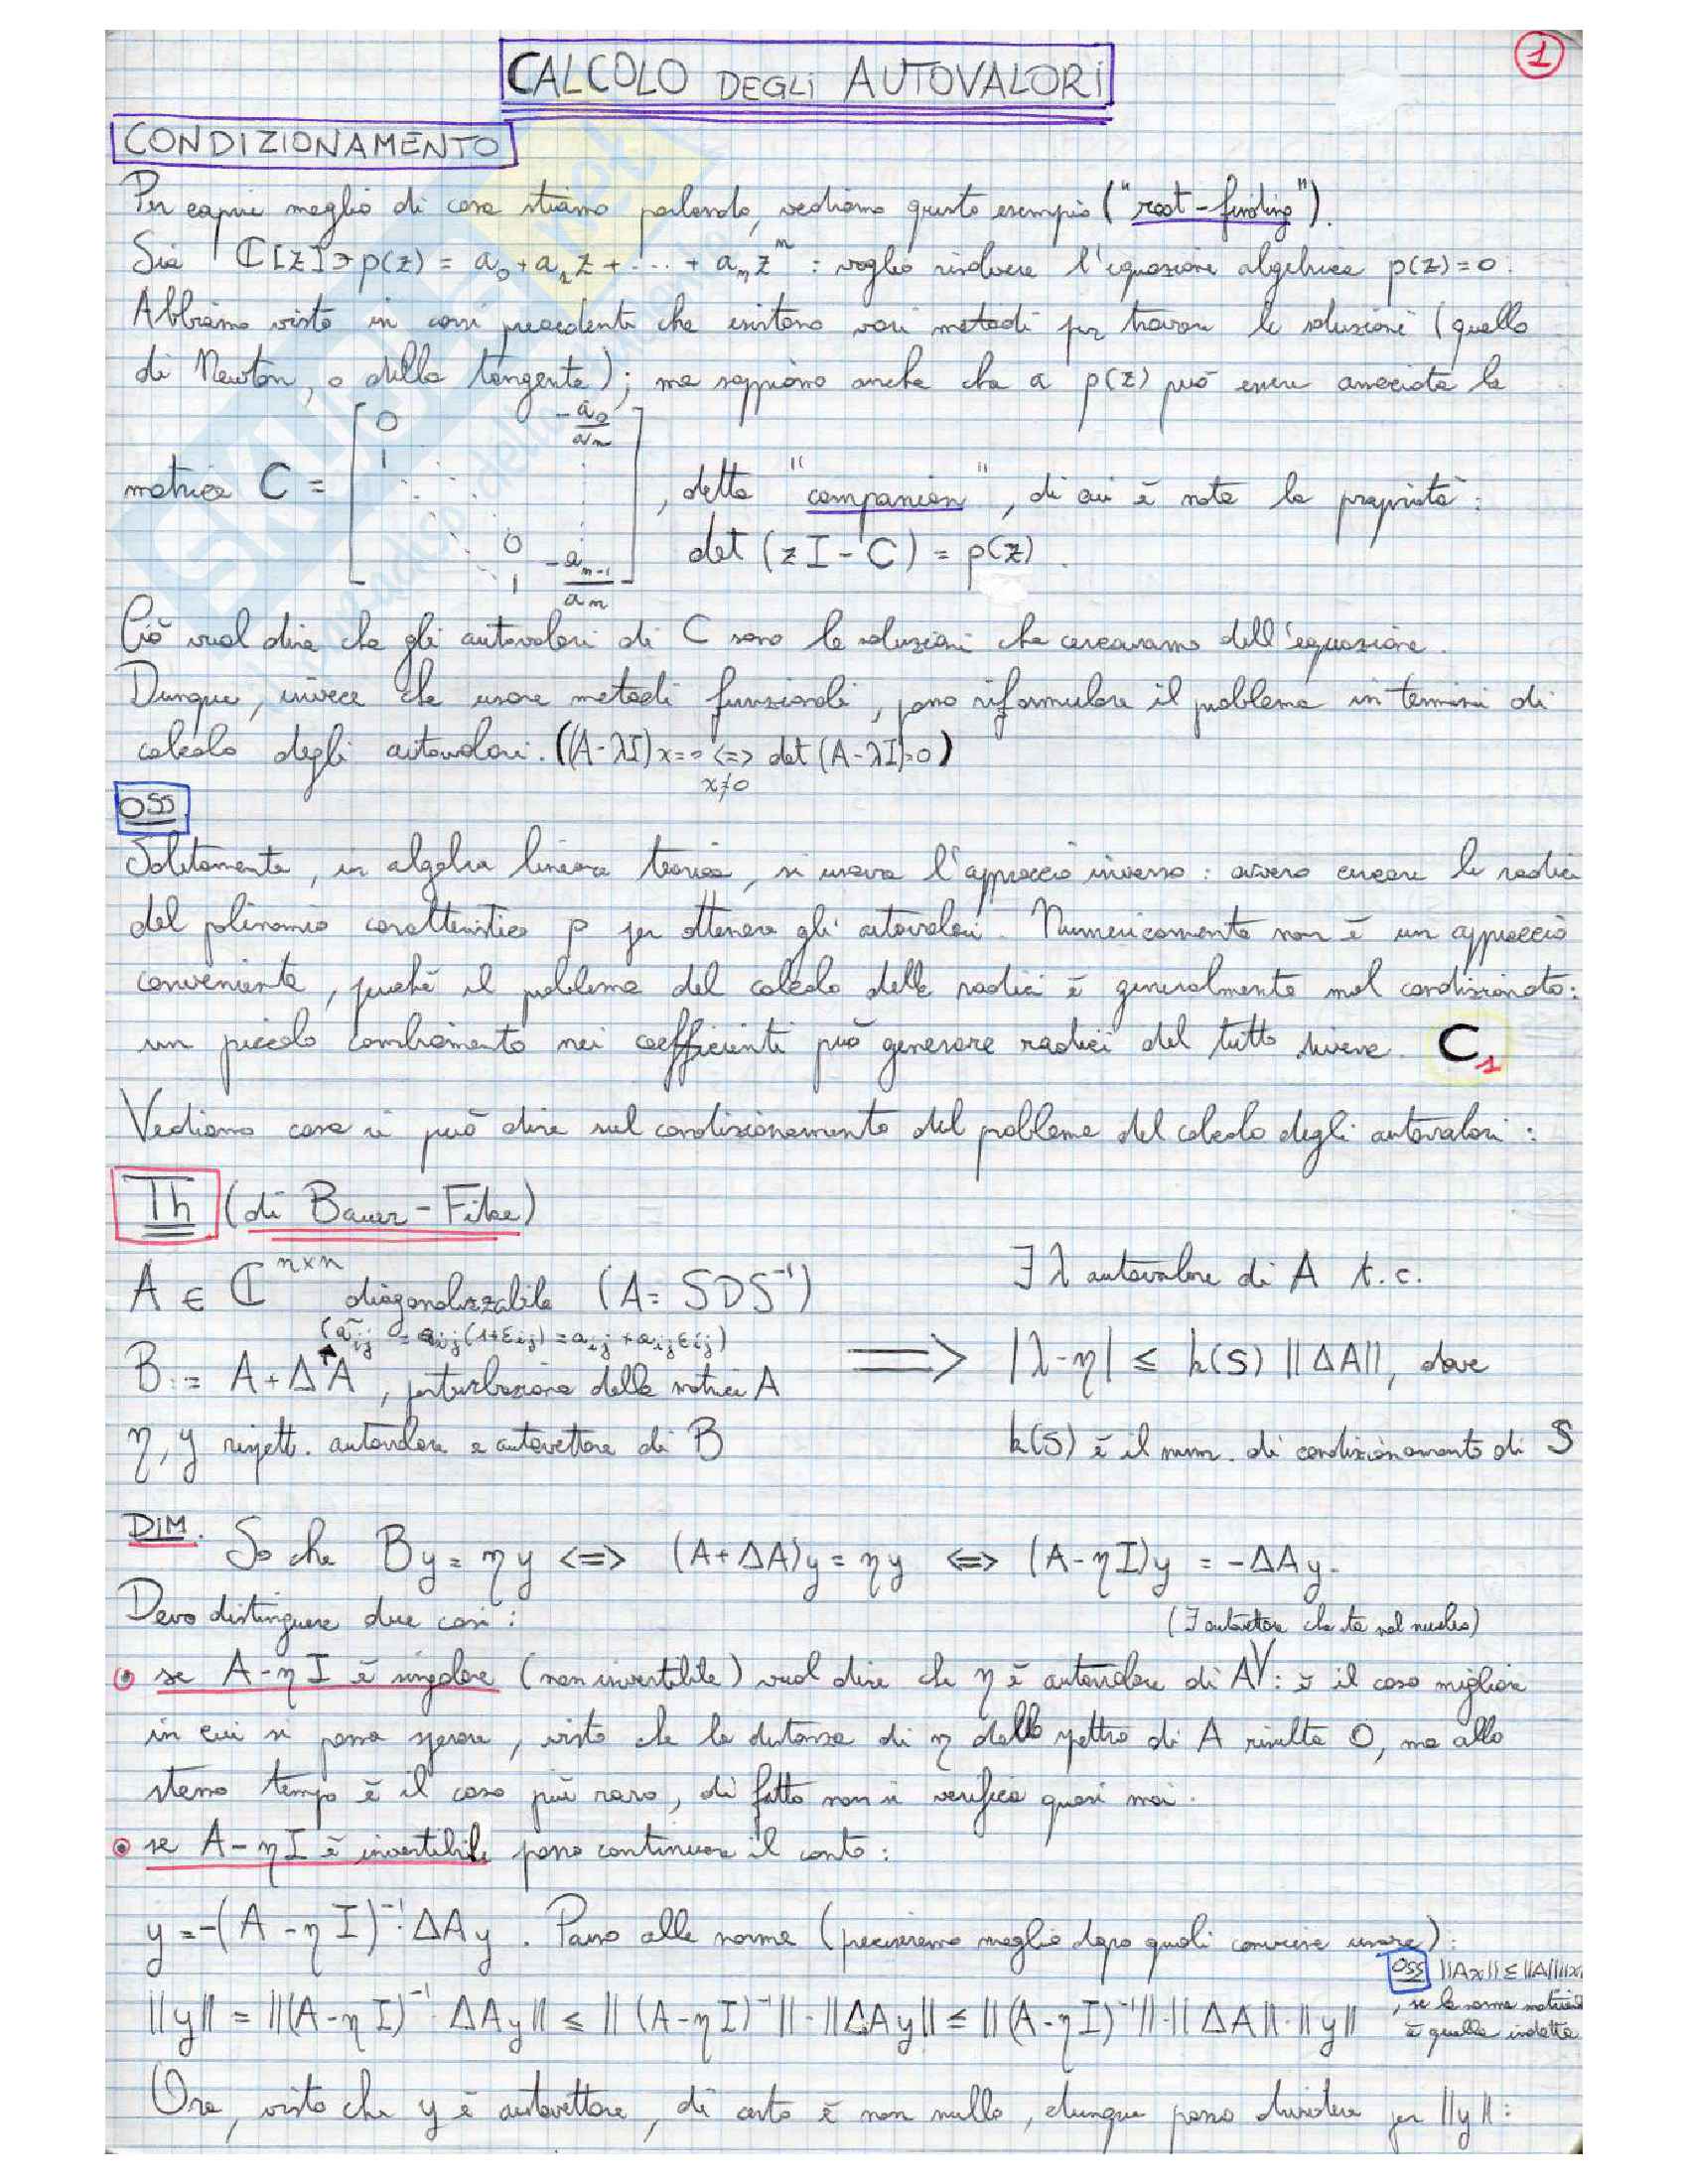 1
CALCOLO DEGLI AUTOVALORI
CONDIZIONAMENTO
Per capire meglio di cosa stiamo parlando, vediamo questo esempio ("root-finding").
Sia ℂ[z]∋p(z) = a₀ + a₁z + ... + aₙzⁿ : voglio risolvere l'equazione algebrica p(z)=0.
Abbiamo visto in corsi precedenti che esistono vari metodi per trovare le soluzioni (quello
di Newton, o della tangente); ma sappiamo anche che a p(z) può essere associata la
matrice C = [0 -a₀/aₙ 1 ⋱ ⋮ 0 1 -aₙ₋₁/aₙ], detta "companion", di cui è nota la proprietà:
det (zI - C) = p(z).
Ciò vuol dire che gli autovalori di C sono le soluzioni che cercavamo dell'equazione.
Dunque, invece che usare metodi funzionali, posso riformulare il problema in termini di
calcolo degli autovalori. ((A-λI)x=0 <=> det (A-λI)=0)
x≠0
OSS
Solitamente, in algebra lineare teorica, si usava l'approccio inverso: ovvero cercare le radici
del polinomio caratteristico p per ottenere gli autovalori. Numericamente non è un approccio
conveniente, perché il problema del calcolo delle radici è generalmente mal condizionato:
un piccolo cambiamento nei coefficienti può generare radici del tutto diverse. C₁
Vediamo cosa si può dire sul condizionamento del problema del calcolo degli autovalori:
Th (di Bauer-Fike)
A ∈ ℂⁿˣⁿ diagonalizzabile (A = SDS⁻¹)
(ãij = aij(1+εij) = aij + aijεij)
B := A + ΔA, perturbazione della matrice A
η, y rispett. autovalore e autovettore di B
=>
∃ λ autovalore di A t.c.
|λ-η| ≤ k(S) ||ΔA||, dove
k(S) è il num. di condizionamento di S
DIM. So che By = ηy <=> (A+ΔA)y = ηy <=> (A-ηI)y = -ΔAy.
Devo distinguere due casi:
(∃ autovettore che sta nel nucleo)
• se A-ηI è singolare (non invertibile) vuol dire che η è autovalore di A: è il caso migliore
in cui si possa sperare, visto che la distanza di η dallo spettro di A risulta 0, ma allo
stesso tempo è il caso più raro, di fatto non si verifica quasi mai.
• se A-ηI è invertibile posso continuare il conto:
y = -(A-ηI)⁻¹·ΔAy. Passo alle norme (preciseremo meglio dopo quali conviene usare):
OSS ||Ax|| ≤ ||A|| ||x||
, se la norma matriciale
è quella indotta
||y|| = ||(A-ηI)⁻¹·ΔAy|| ≤ ||(A-ηI)⁻¹||·||ΔAy|| ≤ ||(A-ηI)⁻¹||·||ΔA||·||y||
Ora, visto che y è autovettore, di certo è non nullo, dunque posso dividere per ||y||: